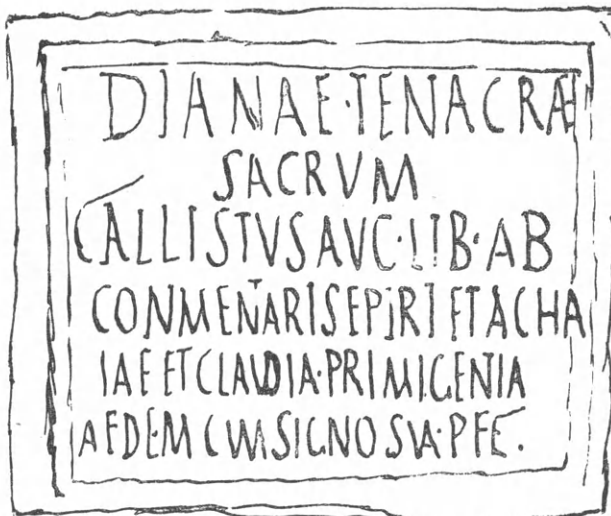 DIANAE·TENACRÆ
SACRVM
CALLISTVS AVG·LIB·AB
CONMENTARIS EPIRI ET ACHA
IAE ET CLAVDIA·PRIMIGENIA
AEDE·M CVM SIGNO SVA·P FE·